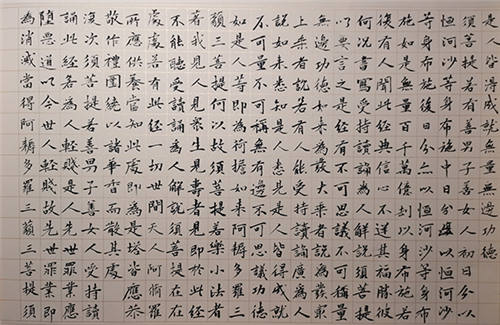 是人皆得成就無量無邊功德
須菩提若有善男子善女人初日分以
恒河沙等身布施中日分復以恒河沙
等身布施後日分亦以恒河沙等身布
施如是無量百千萬億劫以身布施若
復有人聞此經典信心不逆其福勝彼
何況書寫受持讀誦為人解說須菩提
以要言之是經有不可思議不可稱量
無邊功德如來為發大乘者說為發最
上乘者說若有人能受持讀誦廣為人
說如來悉知是人悉見是人皆得成就
不可量不可稱無有邊不可思議功德
如是人等即為荷擔如來阿耨多羅三
藐三菩提何以故須菩提若樂小法者
著我見人見眾生見壽者見即於此經
不能聽受讀誦為人解說須菩提在在
處處若有此經一切世間天人阿修羅
所應供養當知此處即為是塔皆應恭
敬作禮圍繞以諸華香而散其處
復次須菩提若善男子善女人受持讀
誦此經若為人輕賤是人先世罪業應
墮惡道以今世人輕賤故先世罪業即
為消滅當得阿耨多羅三藐三菩提須